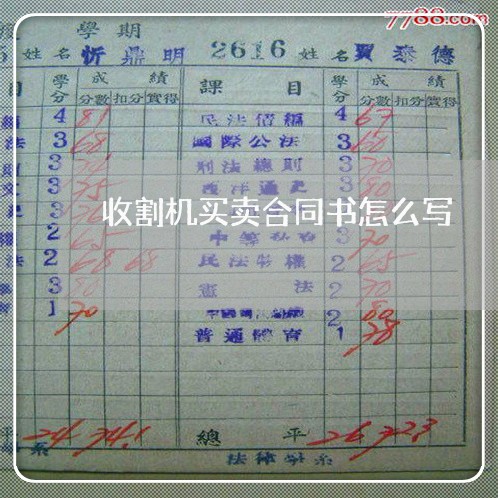 7788.com
學期
姓名 忻鼎明 2616 姓名 賈泰德
目 學分 成績 課目 學分 成績
分數 扣分 實得 分數 扣分 實得
4 81 民法債編 4 67
法 3 68 國際公法 3 60
3 刑法總則 3 70
3 75 西洋通史 3 80
收割机买卖合同书怎么写
2 65 3 70
法 2 68 68 民法物權 2 65
3 80 憲法 2 70
1 70 2 80
普通體育 1 78
平 24 74.1 總平 26 72.3
系 法律學系